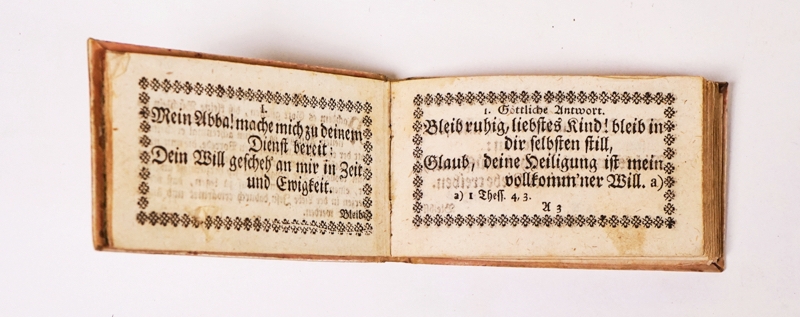 1.
Mein Abba! mache mich zu deinem
Dienst bereit:
Dein Will gescheh' an mir in Zeit
und Ewigkeit.
Bleib
1. Göttliche Antwort.
Bleib ruhig, liebstes Kind! bleib in
dir selbsten still,
Glaub, deine Heiligung ist mein
vollkomm'ner Will. a)
a) 1 Thess. 4, 3.
A 3